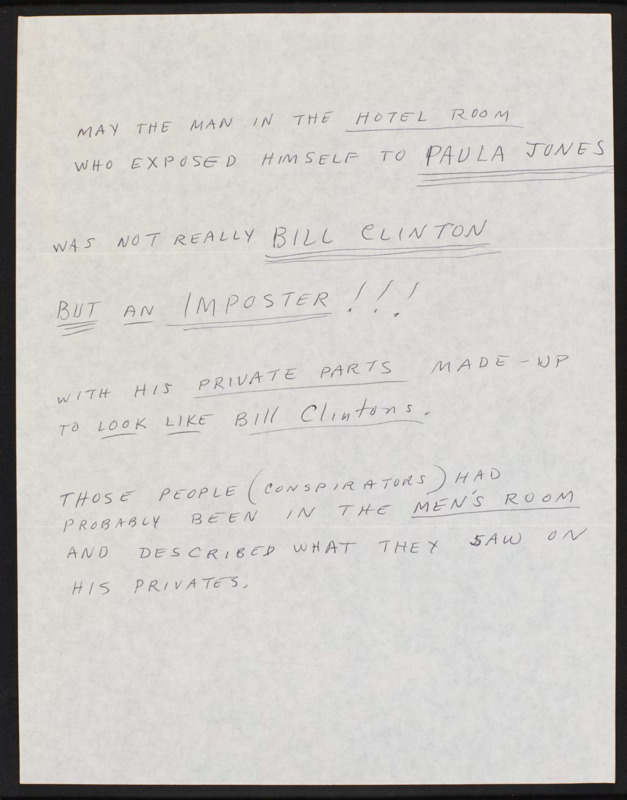 MAY THE MAN IN THE HOTEL ROOM
WHO EXPOSED HIMSELF TO PAULA JONES
WAS NOT REALLY BILL CLINTON
BUT AN IMPOSTER !!!
WITH HIS PRIVATE PARTS MADE-UP
TO LOOK LIKE Bill Clintons.
THOSE PEOPLE (CONSPIRATORS) HAD
PROBABLY BEEN IN THE MEN'S ROOM
AND DESCRIBED WHAT THEY SAW ON
HIS PRIVATES.